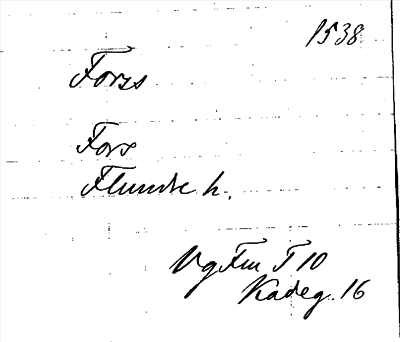 1538
Forss
Fors
Flundre h.
Vg Fm T 10
Kadeg. 16